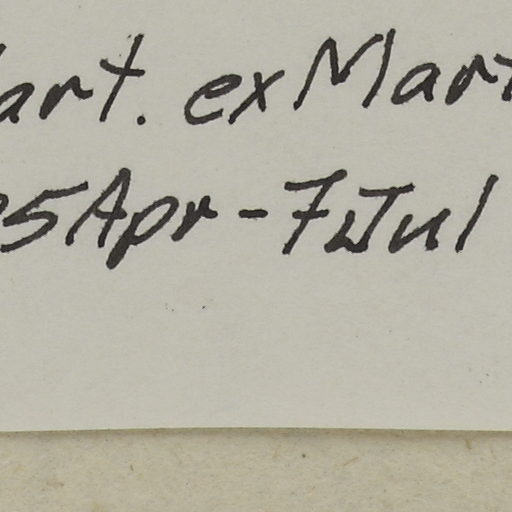 art. ex Mart
25Apr-7Jul